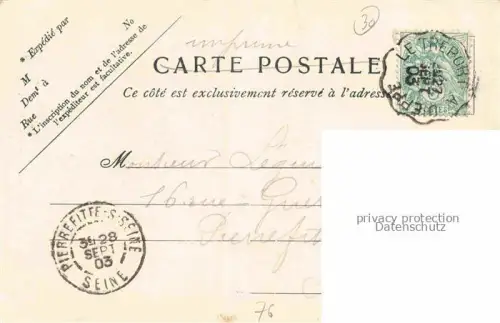 * Expédié par
M
Demt à
Rue
No
* L'inscription du nom et de l'adresse de
l'expéditeur est facultative.
imprimé
30
CARTE POSTALE
Ce côté est exclusivement réservé à l'adresse
LE TRÉPORT A DIEPPE
SEPT
03
Monsieur
16 rue
Pierrefit
privacy protection
Datenschutz
PIERREFITTE-S-SEINE
3E 28
SEPT
03
SEINE
76